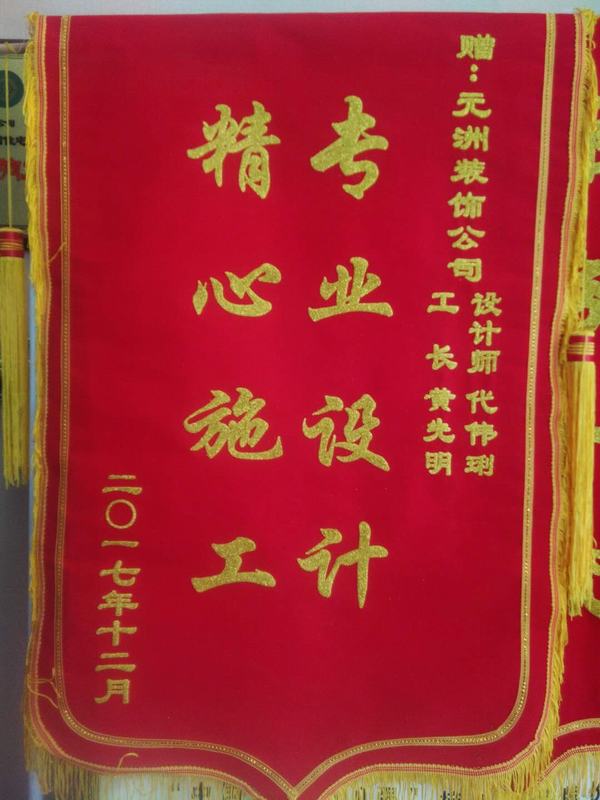 赠：元洲装饰公司
设计师 代伟琍
工 长 黄先明
专业设计
精心施工
二〇一七年十二月